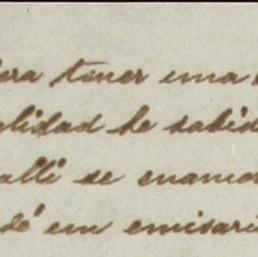 era tener una
lidad he sabid
alli se enamo
dé em emisari